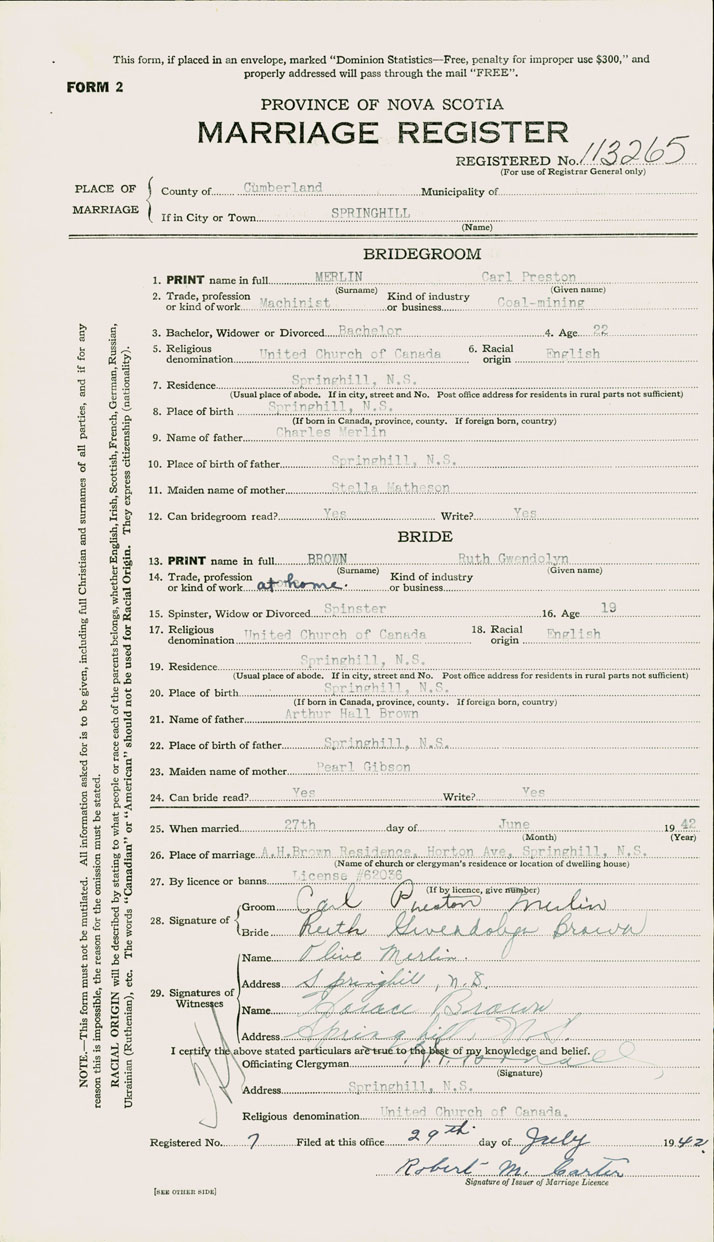 This form, if placed in an envelope, marked "Dominion Statistics—Free, penalty for improper use $300," and
properly addressed will pass through the mail "FREE".
FORM 2
PROVINCE OF NOVA SCOTIA
MARRIAGE REGISTER
REGISTERED No. 113265
(For use of Registrar General only)
PLACE OF MARRIAGE
County of Cumberland Municipality of
If in City or Town SPRINGHILL
(Name)
BRIDEGROOM
1. PRINT name in full MERLIN Carl Preston
(Surname) (Given name)
2. Trade, profession or kind of work Machinist Kind of industry or business Coal-mining
3. Bachelor, Widower or Divorced Bachelor 4. Age 22
5. Religious denomination United Church of Canada 6. Racial origin English
7. Residence Springhill, N.S.
(Usual place of abode. If in city, street and No. Post office address for residents in rural parts not sufficient)
8. Place of birth Springhill, N.S.
(If born in Canada, province, county. If foreign born, country)
9. Name of father Charles Merlin
10. Place of birth of father Springhill, N.S.
11. Maiden name of mother Stella Matheson
12. Can bridegroom read? Yes Write? Yes
BRIDE
13. PRINT name in full BROWN Ruth Gwendolyn
(Surname) (Given name)
14. Trade, profession or kind of work at home. Kind of industry or business
15. Spinster, Widow or Divorced Spinster 16. Age 19
17. Religious denomination United Church of Canada 18. Racial origin English
19. Residence Springhill, N.S.
(Usual place of abode. If in city, street and No. Post office address for residents in rural parts not sufficient)
20. Place of birth Springhill, N.S.
(If born in Canada, province, county. If foreign born, country)
21. Name of father Arthur Hall Brown
22. Place of birth of father Springhill, N.S.
23. Maiden name of mother Pearl Gibson
24. Can bride read? Yes Write? Yes
25. When married 27th day of June 1942
(Month) (Year)
26. Place of marriage A.H.Brown Residence, Horton Ave, Springhill, N.S.
(Name of church or clergyman's residence or location of dwelling house)
27. By licence or banns License #62036
(If by licence, give number)
28. Signature of
Groom Carl Preston Merlin
Bride Ruth Gwendolyn Brown
29. Signatures of Witnesses
Name Olive Merlin.
Address Springhill, N.S.
Name Horace Brown
Address Springhill, N.S.
I certify the above stated particulars are true to the best of my knowledge and belief.
Officiating Clergyman
(Signature)
Address Springhill, N.S.
Religious denomination United Church of Canada.
Registered No. 7 Filed at this office 29th day of July 1942
Robert M. Carter
Signature of Issuer of Marriage Licence
[SEE OTHER SIDE]
NOTE.—This form must not be mutilated. All information asked for is to be given, including full Christian and surnames of all parties, and if for any
reason this is impossible, the reason for the omission must be stated.
RACIAL ORIGIN will be described by stating to what people or race each of the parents belongs, whether English, Irish, Scottish, French, German, Russian,
Ukrainian (Ruthenian), etc. The words "Canadian" or "American" should not be used for Racial Origin. They express citizenship (nationality).